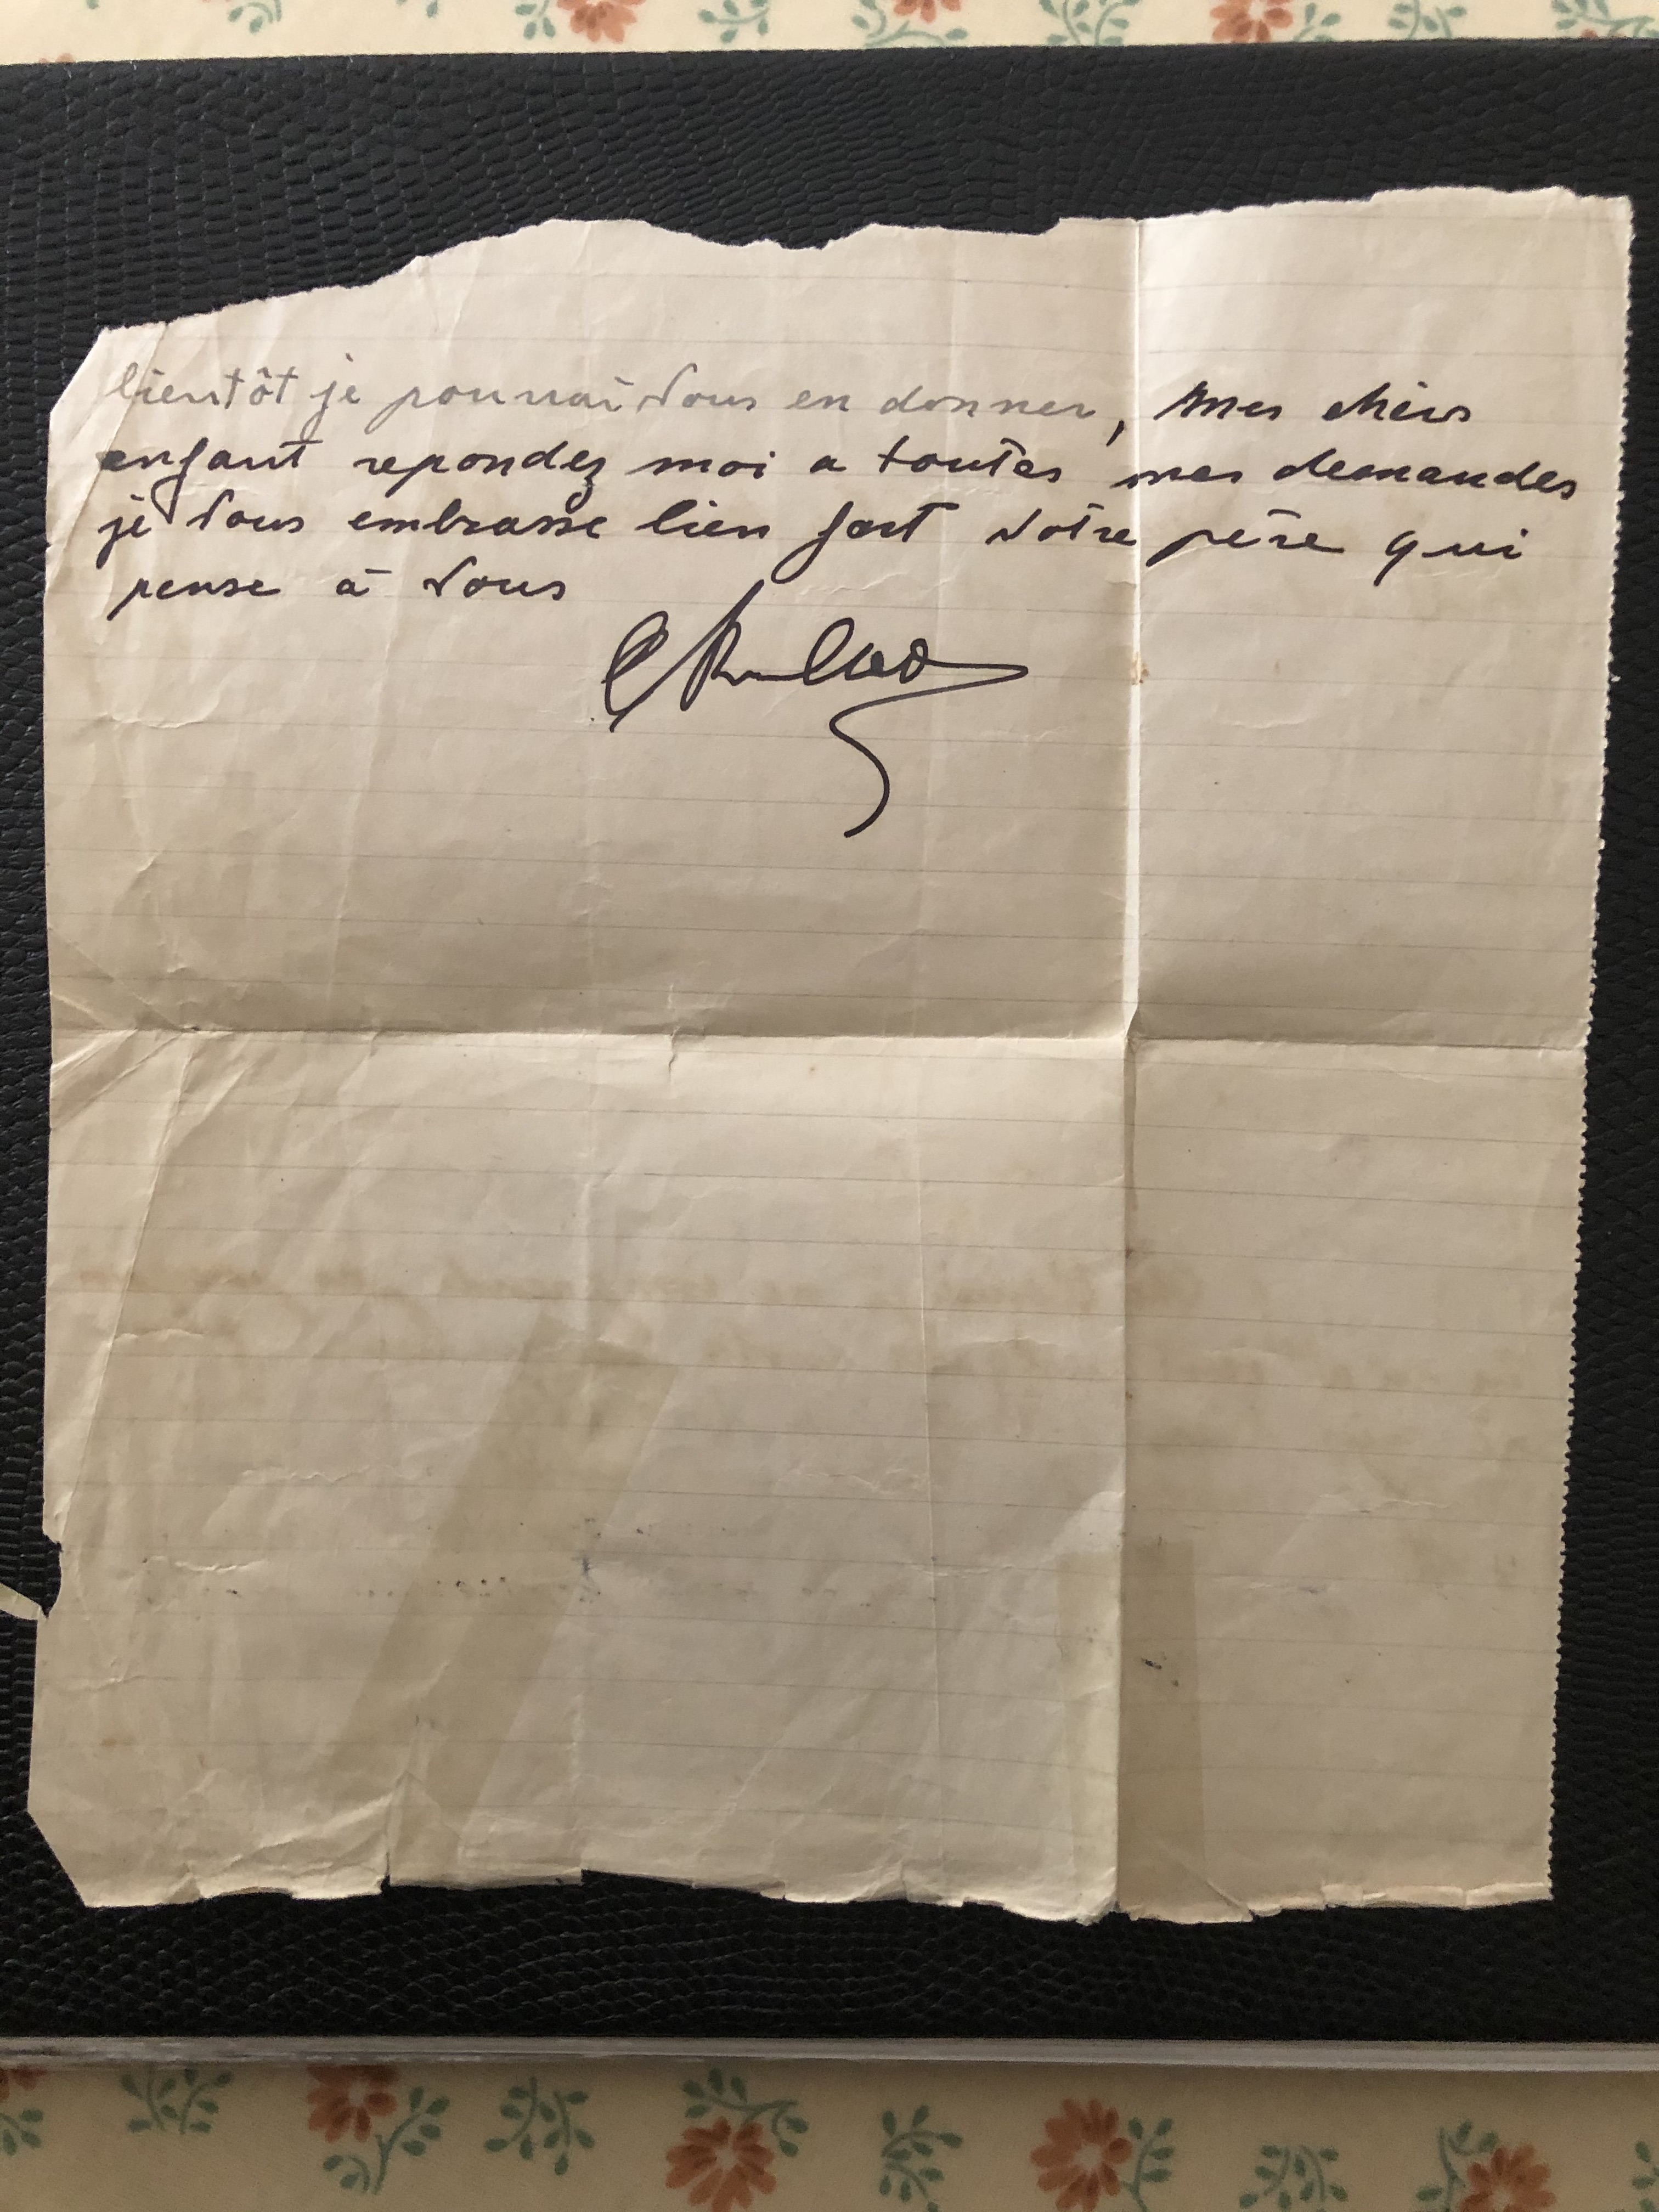 bientôt je pourrai vous en donner, mes chers
enfant repondez moi a toutes mes demandes
je vous embrasse bien fort votre père qui
pense à vous